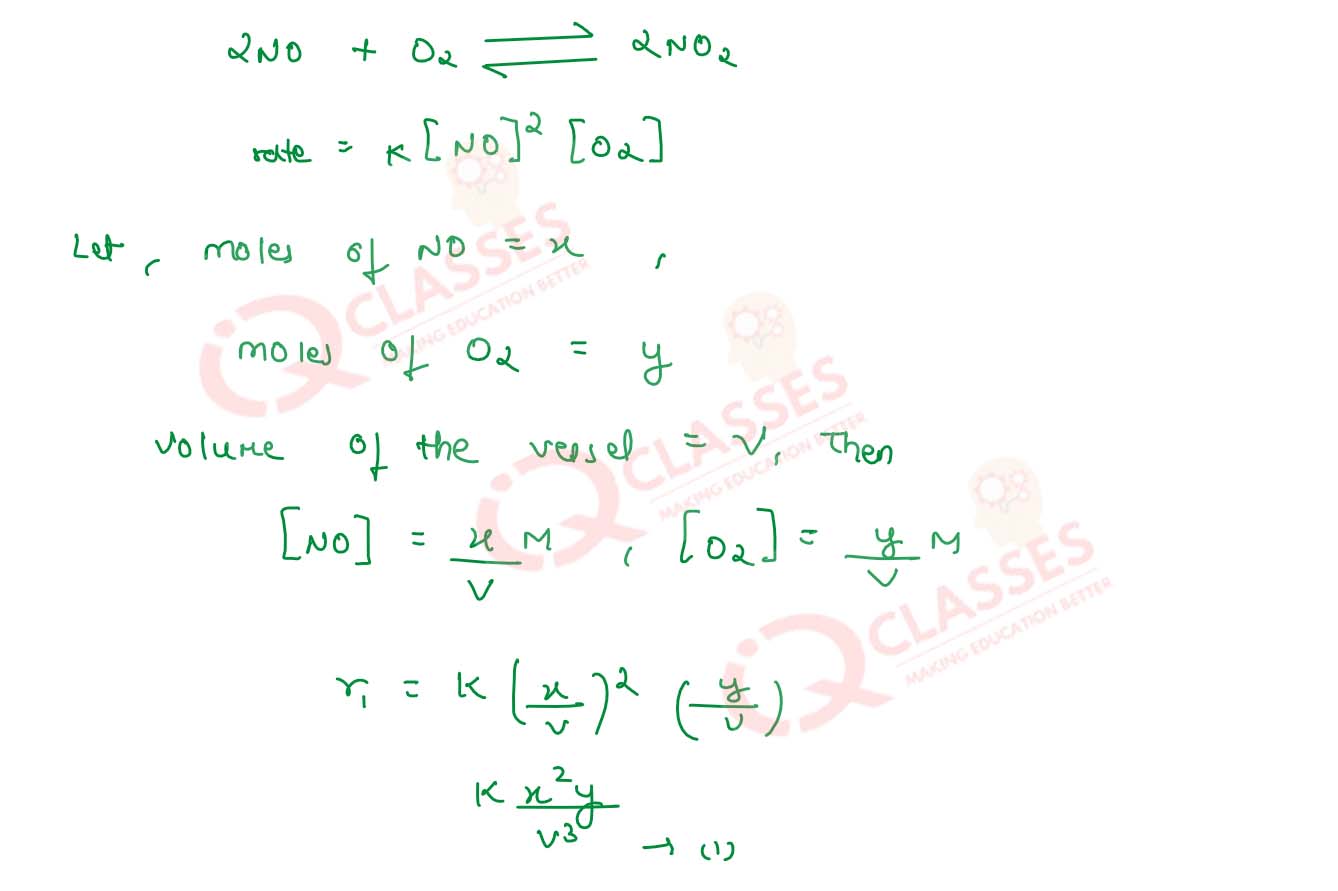 2NO + O2 ⇌ 2NO2
rate = K[NO]^2 [O2]
Let, moles of NO = x,
moles of O2 = y
Volume of the vessel = V, Then
[NO] = x/V M, [O2] = y/V M
r1 = K (x/V)^2 (y/V)
K x^2y/V^3 → (1)
iQ CLASSES
MAKING EDUCATION BETTER
iQ CLASSES
MAKING EDUCATION BETTER
iQ CLASSES
MAKING EDUCATION BETTER